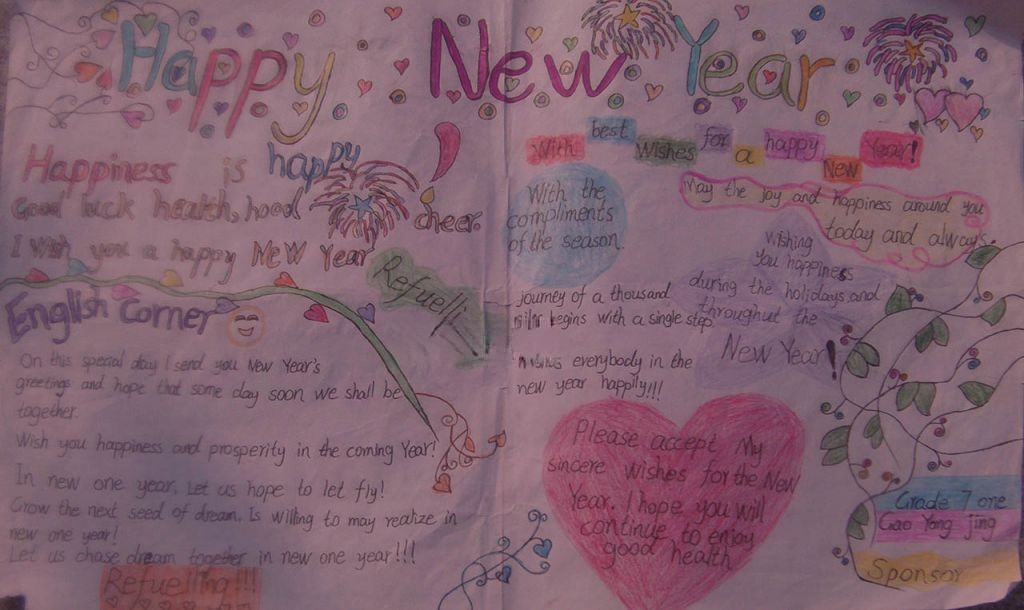 Happy New Year
Happiness is happy
Good luck health, hood cheer.
I wish you a happy NEW YEAR
Refuelli
English Corner
On this special day I send you New Year's
greetings and hope that some day soon we shall be
together.
Wish you happiness and prosperity in the coming Year!
In new one year, Let us hope to let fly!
Grow the next seed of dream. Is willing to may realize in
new one year!
Let us chase dream together in new one year!!!
Refuelling!!!
With best wishes for a happy New Year!
With the
compliments
of the season.
May the joy and happiness around you
today and always.
Wishing
you happiness
during the holidays and
throughout the
New Year!
journey of a thousand
begins with a single step.
everybody in the
new year happily!!!
Please accept My
sincere wishes for the New
Year. I hope you will
continue to enjoy
good health
Grade 7 one
Gao Yong jing
Sponsor